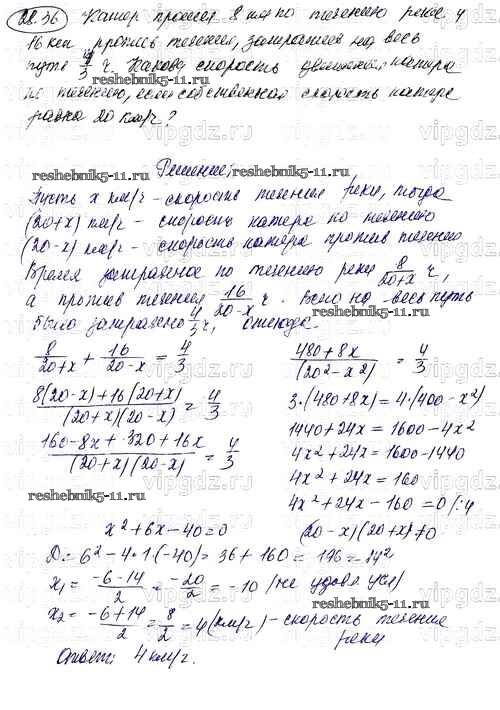 28.36 Катер прошел 8 км по течению реки и
16 км против течения, затратив на весь
путь 4/3 ч. Какова скорость движения катера
по течению, если собственная скорость катера
равна 20 км/ч?
reshebnik5-11.ru
Решение:
Пусть x км/ч - скорость течения реки, тогда
(20+x) км/ч - скорость катера по течению
(20-x) км/ч - скорость катера против течения
Время затраченое по течению реки 8/(20+x) ч,
а против течения 16/(20-x) ч. Всего на весь путь
было затрачено 4/3 ч, отсюда.
8/(20+x) + 16/(20-x) = 4/3
(8(20-x)+16(20+x))/((20+x)(20-x)) = 4/3
(160-8x+320+16x)/((20+x)(20-x)) = 4/3
(480+8x)/(20²-x²) = 4/3
3·(480+8x)=4·(400-x²)
1440+24x=1600-4x²
4x²+24x=1600-1440
4x²+24x=160
4x²+24x-160=0/:4
(20-x)(20+x)≠0
x²+6x-40=0
D= 6²-4·1(-40)=36+160=196=14²
x₁= (-6-14)/2 = -20/2 = -10 /не удов. усл/
x₂= (-6+14)/2 = 8/2 = 4(км/ч) - скорость течения
реки
Ответ: 4 км/ч.